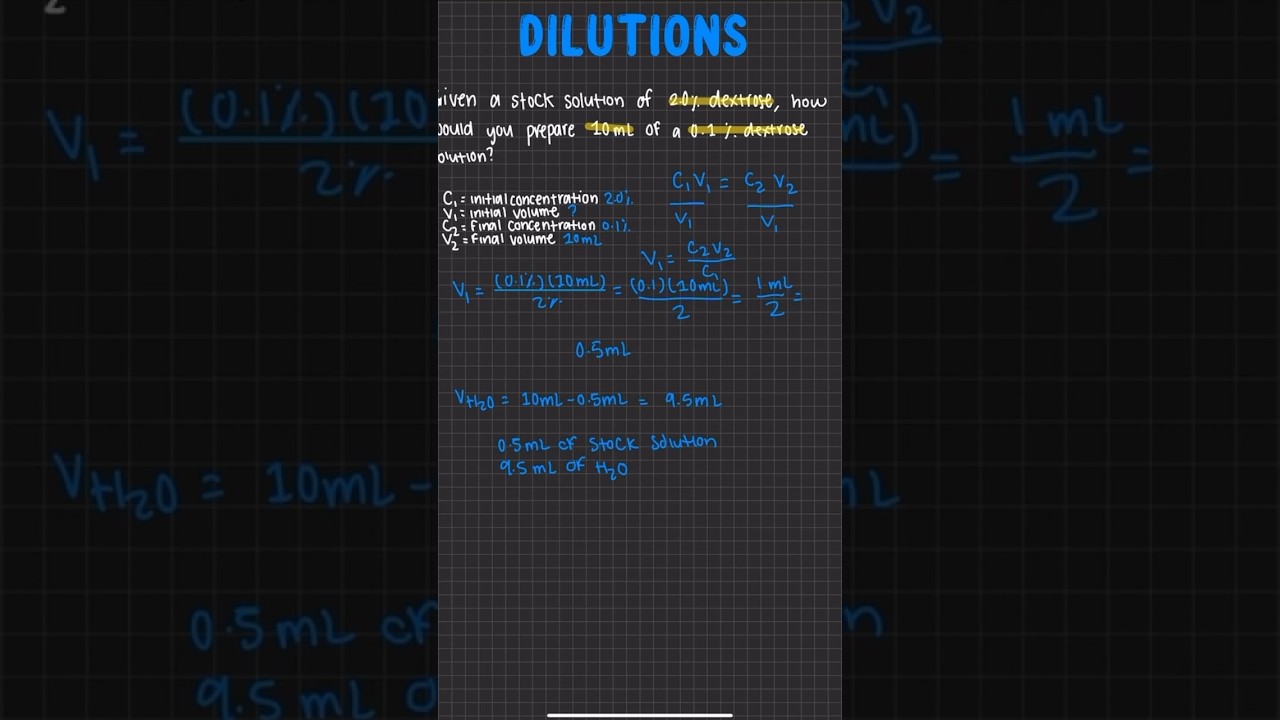 DILUTIONS
iven a stock solution of 2.0% dextrose, how
ould you prepare 10 mL of a 0.1 % dextrose
olution?
C₁ V₁ = C₂ V₂
V₁ V₁
C₁ = initial concentration 2.0%
V₁ = initial volume ?
C₂ = final concentration 0.1%
V₂ = final volume 10mL
V₁ = C₂ V₂ / C₁
V₁ = (0.1%)(10mL) / 2% = (0.1)(10mL) / 2 = 1 mL / 2 =
0.5mL
V H₂O = 10mL - 0.5mL = 9.5mL
0.5mL of stock solution
9.5 mL of H₂O